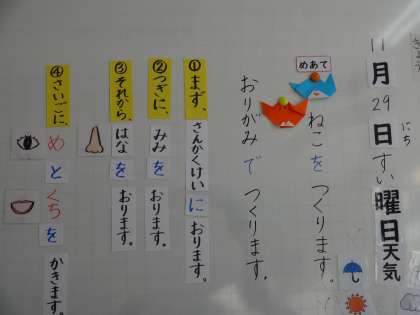 11月29日すい曜日天気
にち
めあて
ねこをつくります。
おりがみでつくります。
①まず、さんかくけいにおります。
②つぎに、みみをおります。
③それから、はなをおります。
④さいごに、めとくちをかきます。